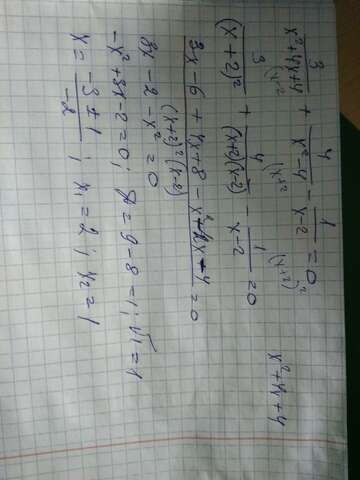 3/(x²+4x+4) + 4/(x²-4) - 1/(x-2) = 0
(x-2) (x+2) (x+2)²
x²+4x+4
3/(x+2)² + 4/((x+2)(x-2)) - 1/(x-2) = 0
(3x-6+4x+8-x²-4x-4)/((x+2)²(x-2)) = 0
3x-2-x²=0
-x²+3x-2=0; D=9-8=1; √1=1
x = (-3±1)/(-2); x₁=2; x₂=1